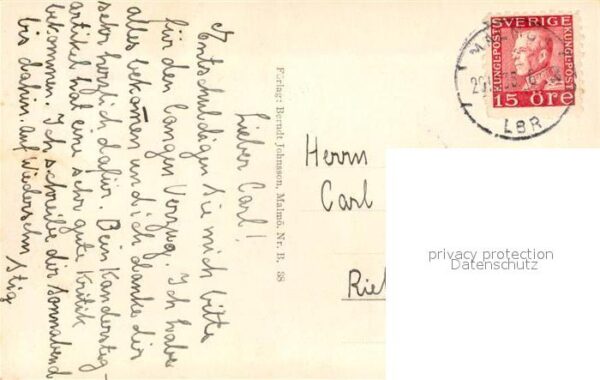 Lieber Carl!
Entschuldigen Sie mich bitte
für den langen Verzug. Ich habe
alles bekommen und ich danke dir
sehr herzlich dafür. Dein Kandersteg-
artikel hat eine sehr gute Kritik
bekommen. Ich schreibe dir sonnabend
bis dahin auf Wiedersehn Stig
Förlag: Berndt Johnsson, Malmö. Nr. B. 38
SVERIGE
KUNGL·POST
KUNGL·POST
15 ÖRE
LBR
Herrn
Carl
privacy protection
Datenschutz